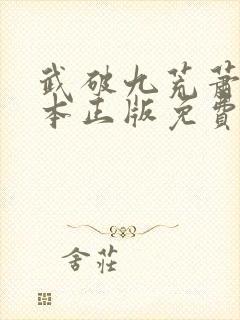 武破九荒萧
本正版免費
舍莊